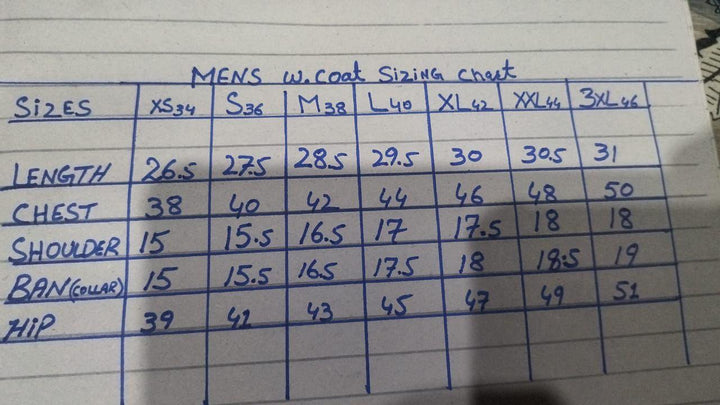 MENS W.Coat Sizing Chart
SIZES XS34 S36 M38 L40 XL42 XXL44 3XL46
LENGTH 26.5 27.5 28.5 29.5 30 30.5 31
CHEST 38 40 42 44 46 48 50
SHOULDER 15 15.5 16.5 17 17.5 18 18
BAN(COLLAR) 15 15.5 16.5 17.5 18 18.5 19
HIP 39 41 43 45 47 49 51